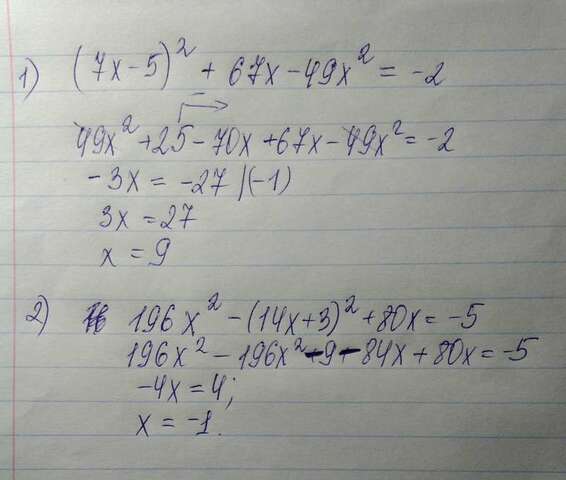 1) (7x-5)² + 67x - 49x² = -2
49x² + 25 - 70x + 67x - 49x² = -2
-3x = -27 |(-1)
3x = 27
x = 9
2) 196x² - (14x+3)² + 80x = -5
196x² - 196x² - 9 - 84x + 80x = -5
-4x = 4;
x = -1.